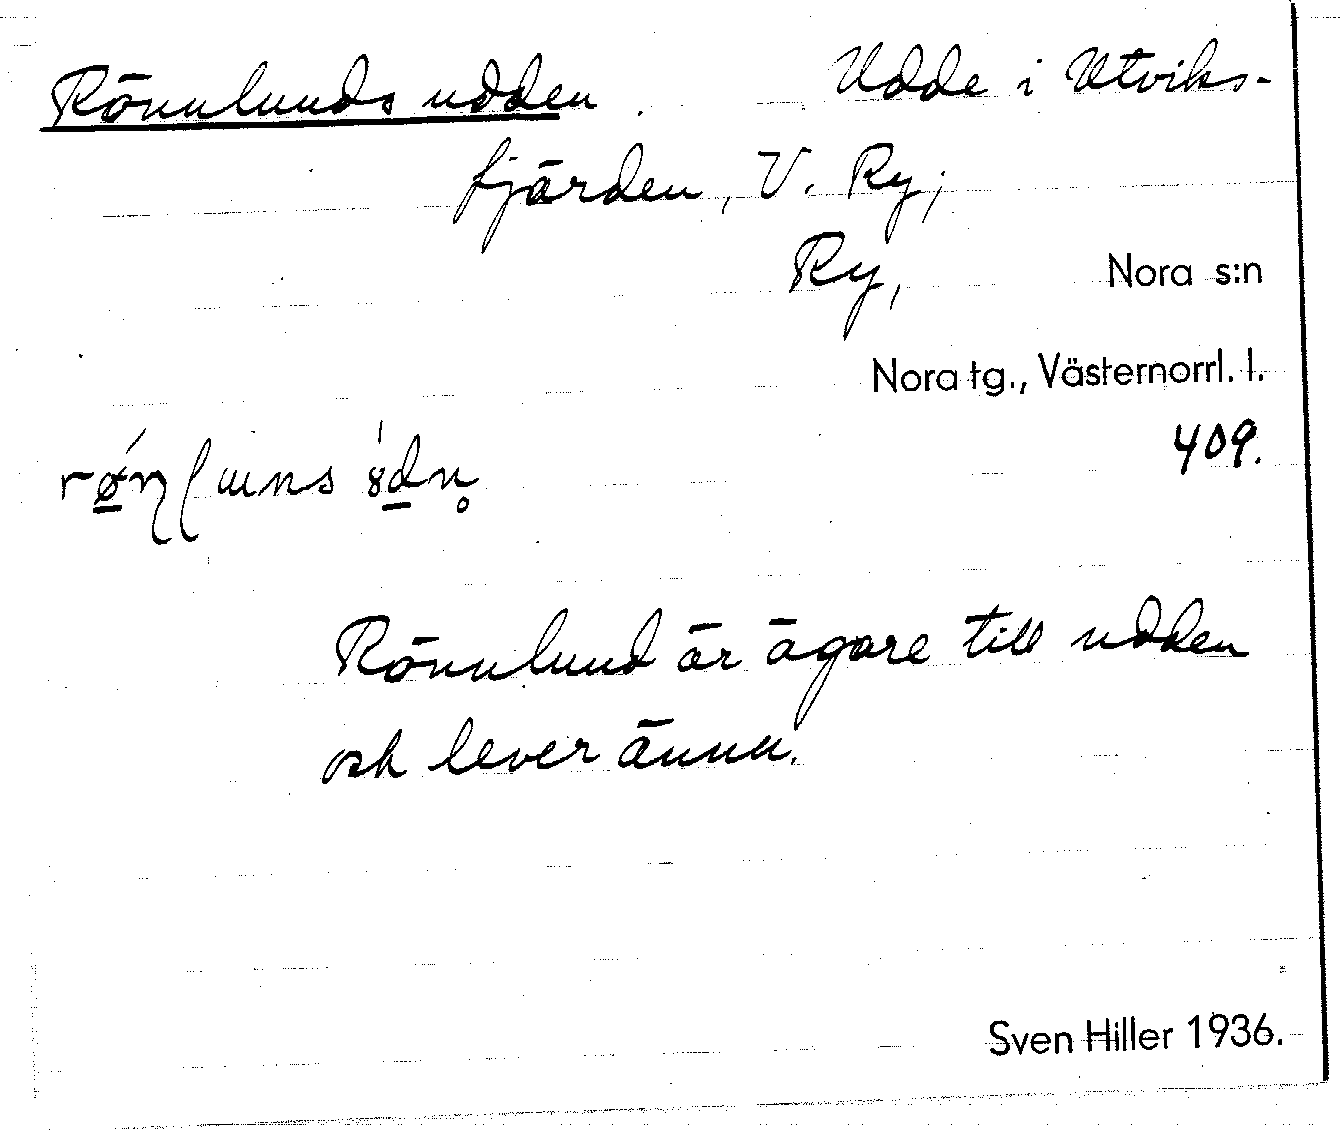 Rönnlunds udden. Udde i Utviks-
fjärden, V. Ry;
Ry, Nora s:n
Nora tg., Västernorrl. l.
409.
Rönnlund är ägare till udden
och lever ännu.
Sven Hiller 1936.